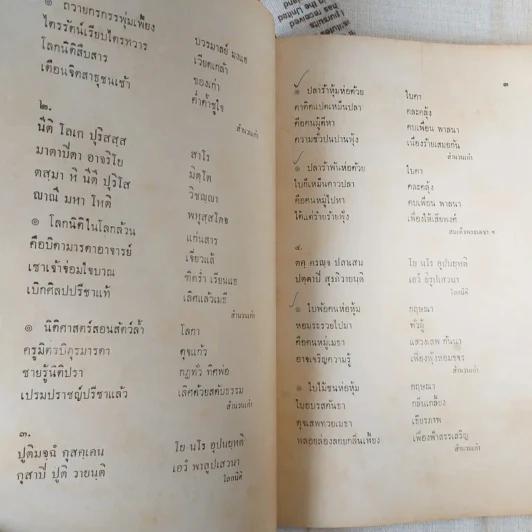 ๏ ถวายกรกรรพุ่มเพี้ยง บวรมาลย์ มงแฮ
ไตรรัตน์เรียบไตรทวาร เวียดเกล้า
โลกนิติสืบสาร ของเก่า
เตือนจิตสาธุชนเช้า ค่ำค้าชูใจ
สำนวนเก่า
๒.
นีติ โลเก ปุริสสฺส สาโร
มาตาปิตา อาจริโย มิตฺโต
ตสฺมา หิ นีตึ ปุริโส วิชญฺญา
ญาณี มหา โหติ พหุสฺสโตจ
๏ โลกนิติในโลกล้วน แก่นสาร
คือบิดามารดาอาจารย์ เจี่ยวแล้
เชาเจ้าจ่อมใจบาณ ฑิตร่ำ เรียนแฮ
เบิกศิลปปรีชาแท้ เลิศแล้วเมธี
สำนวนเก่า
๏ นิติศาสตร์สอนสัตว์ล้ำ โลกา
ครูมิตรบิตุรมารดา ดุจแก้ว
ชายรู้นิติปรา กฎทั่ว ทิศพ่อ
เปรมปราชญ์ปรีชาแล้ว เลิศด้วยสดับธรรม
สำนวนเก่า
๓.
ปูติมจฺฉํ กุสคฺเคน โย นโร อุปนยฺหติ
กุสาปี ปูติ วายนฺติ เอวํ พาลูปเสวนา
โลกนิติ
๓
๏ ปลาร้าหุ้มห่อด้วย ใบคา
คาติดแปดเหม็นปลา คละคลุ้ง
คือคนผู้ดีหา คบเพื่อน พาลนา
ความชั่วปนปานฟุ้ง เนื่องร้ายเสมอกัน
สำนวนเก่า
๏ ปลาร้าพันห่อด้วย ใบคา
ใบก็เหม็นคาวปลา คละคลุ้ง
คือคนหมู่ไปหา คบเพื่อน พาลนา
ได้แต่ร้ายร้ายฟุ้ง เฟื่องให้เสียพงศ์
สมเด็จพระเดชา ฯ
๔.
ตครํ ปลาเสน โย นโร อุปนยฺหติ
ปตฺตาปี สุรภิวายนฺติ เอวํ ธีรูปเสวนา
โลกนิติ
๏ ใบพ้อคนห่อหุ้ม กฤษณา
หอมระรวยไปมา พัวผู้
คือคนหมู่เมธา แสวงเสพ กันนา
อาจเจริญความรู้ เฟื่องฟุ้งหอมขจร
สำนวนเก่า
๏ ใบไม้ชนห่อหุ้ม กฤษณา
ใบอบรสคันธา กลิ่นเกลี้ยง
ดุจเสพทวยเมธา เธียรภาพ
พลอยล่องลดยกลิ่นเพี้ยง เฟื่องฟ้าสรรเสริญ
สำนวนเก่า
has received
the United